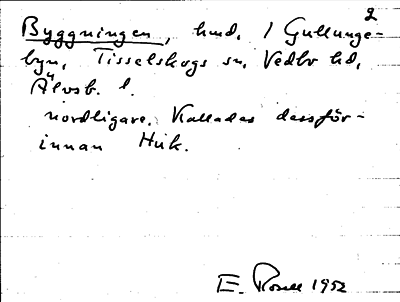 2
Byggningen, hmd. i Gullunge-
byn, Tisselskogs sn, Vedbo hd,
Älvsb. l.
nordligare. Kallades dessför-
innan Huk.
E. Rosell 1952